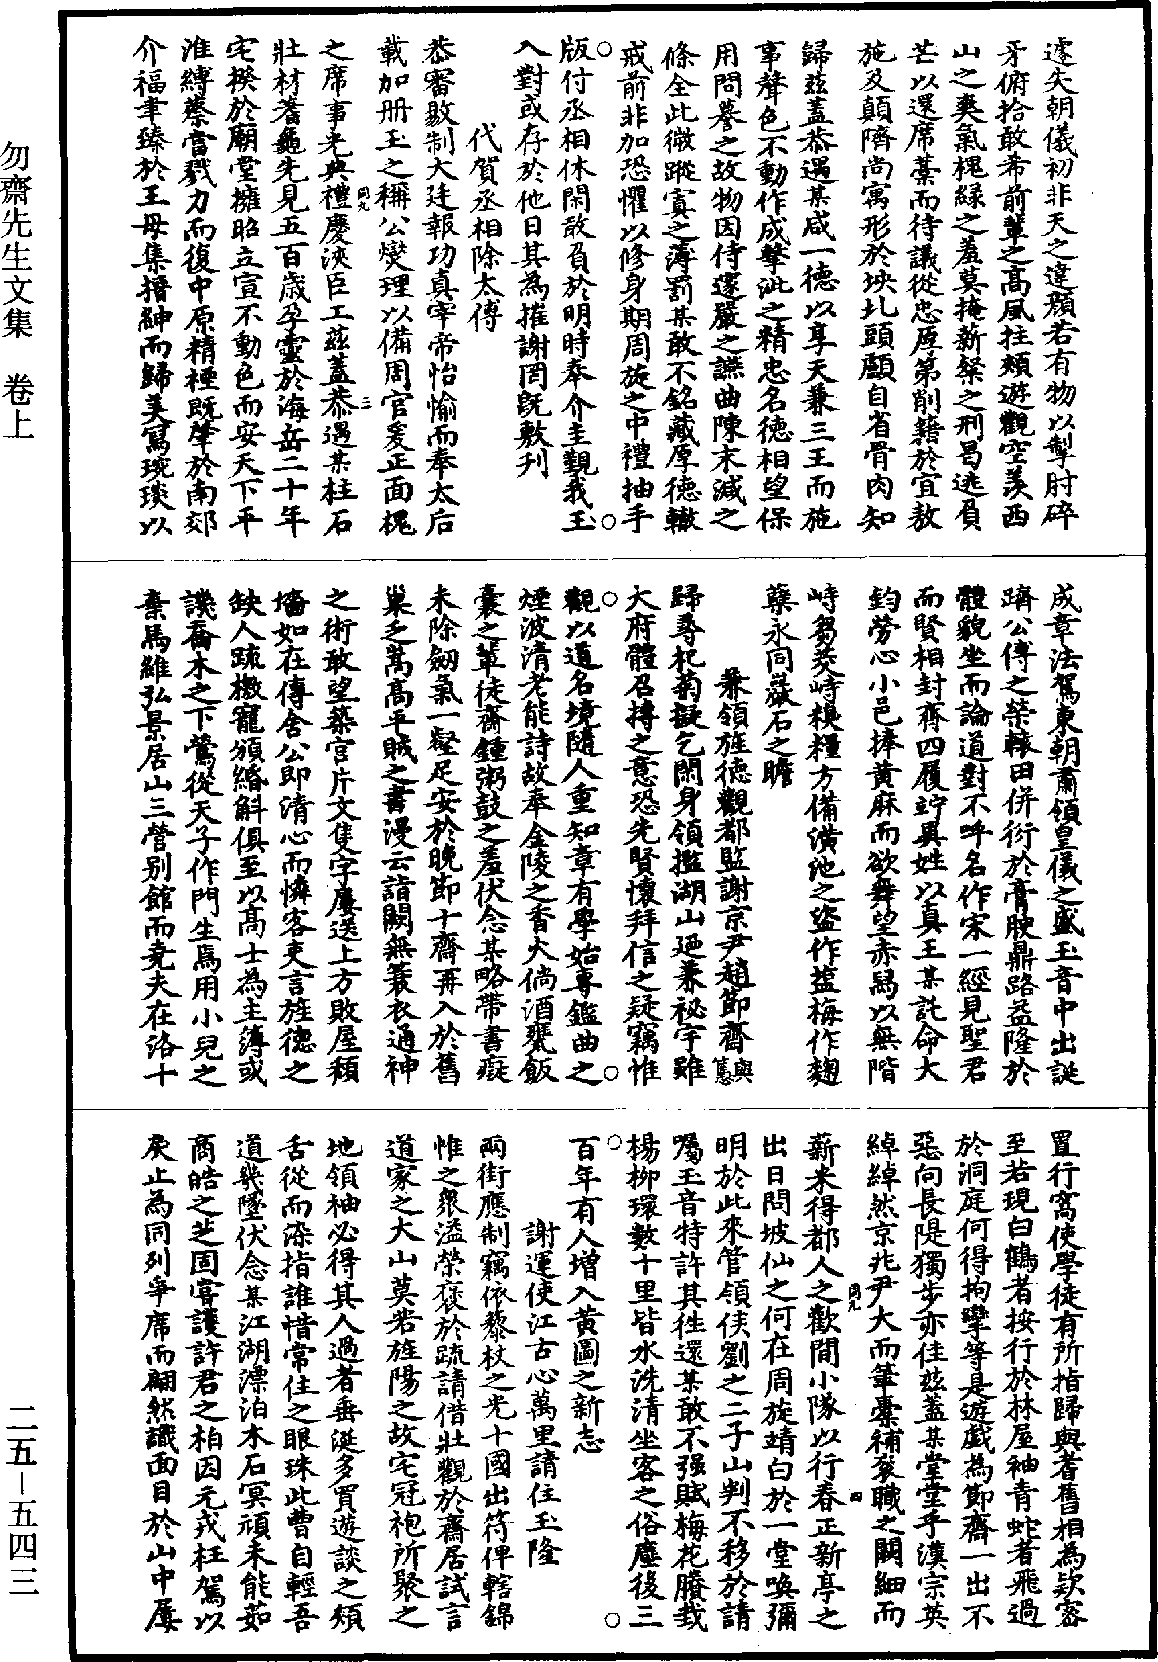 遽失朝儀初非天之違顏若有物以掣肘碎
牙俯拾敢希前輩之高風拄頰遊觀空羨西
山之爽氣槐綠之羞莫掩薪粲之刑曷逃負
芒以還席藁而待議從忠厚第削籍於宜敖
施及顛隮尚寓形於坱圠頭顱自省骨肉知
歸茲蓋恭遇某咸一德以享天兼三王而施
事聲色不動作成擊泚之精忠名德相望保
用問摹之故物因侍邃嚴之讌曲陳末減之
條全此微蹤寘之薄罰某敢不銘藏厚德轍
戒前非加恐懼以修身期周旋之中禮抽手
版付丞相休閑敢負於明時奉介圭覲我王
入對或存於他日其為摧謝罔既敷刋
代賀丞相除太傅
恭審敭制大廷報功真宰帝怡愉而奉太后
載加冊玉之稱公燮理以備周官爰正面槐
之席事光典禮慶浹臣工茲蓋恭遇某柱石
壯材蓍龜先見五百歲孕靈於海岳二十年
宅揆於廟堂擁昭立宣不動色而安天下平
淮縛蔡當戮力而復中原精禋既肇於南郊
介福聿臻於王母集搢紳而歸美寫琬琰以
成章法駕東朝肅領皇儀之盛玉音中出誕
躋公傅之榮轅田併衍於膏腴鼎路益隆於
體貌坐而論道對不呼名作宋一經見聖君
而賢相封齊四履竚異姓以真王某託命大
鈞勞心小邑捧黃麻而欲舞望赤舄以無階
峙芻茭峙糗糧方備潢池之盜作鹽梅作麹
糵永同巖石之瞻
兼領旌德觀都監謝京尹趙節齋與𥲅
歸尋杞菊擬乞閑身領監湖山廼兼祕宇雖
大府體召摶之意恐先賢懷拜信之疑竊惟
觀以道名境隨人重知章有學始專鑑曲之
煙波清老能詩故奉金陵之香火倘酒甕飯
囊之輩徒齋鍾粥鼓之羞伏念某略帶書癡
未除劒氣一壑足安於晚節十齋再入於舊
巢乏萬高平賊之書漫云詣闕無蓑衣通神
之術敢望築宮片文隻字屢送上方敗屋頹
墻如在傳舍公即清心而憐客吏言旌德之
缺人疏檄寵頒緡斛俱至以高士為主簿或
譏喬木之下鶯從天子作門生焉用小兒之
棄馬維弘景居山三營別館而堯夫在洛十
置行窩使學徒有所指歸與耆舊相為欵密
至若現白鶴者按行於林屋袖青蛇者飛過
於洞庭何得拘攣等是遊戲為節齋一出不
惡向長隄獨步亦佳茲蓋某堂堂乎漢宗英
綽綽然京兆尹大而筆橐補袞職之闕細而
薪米得都人之歡間小隊以行春正新亭之
出日問坡仙之何在周旋靖白於一堂喚彌
明於此來管領侯劉之二子山判不移於請
囑玉音特許其徃還某敢不强賦梅花賸栽
楊柳環數十里皆水洗清坐客之俗塵後三
百年有人增入黃圖之新志
謝運使江古心萬里請住玉隆
兩街應制竊依藜杖之光十國出符俾轄錦
惟之衆溢榮褒於疏請借壯觀於齋居試言
道家之大山莫若旌陽之故宅冠袍所聚之
地領袖必得其人過者垂涎多買遊談之頰
舌從而染指誰惜常住之眼珠此曹自輕吾
道幾墜伏念某江湖漂泊木石冥頑未能茹
商皓之芝固嘗護許君之柏因元戎枉駕以
矦止為同列爭席而翩然識面目於山中屢
勿齋先生文集　卷上
二五－五四三